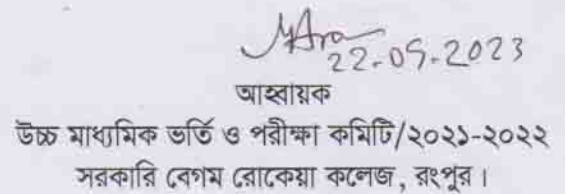 22-05-2023
আহ্বায়ক
উচ্চ মাধ্যমিক ভর্তি ও পরীক্ষা কমিটি/২০২১-২০২২
সরকারি বেগম রোকেয়া কলেজ, রংপুর।